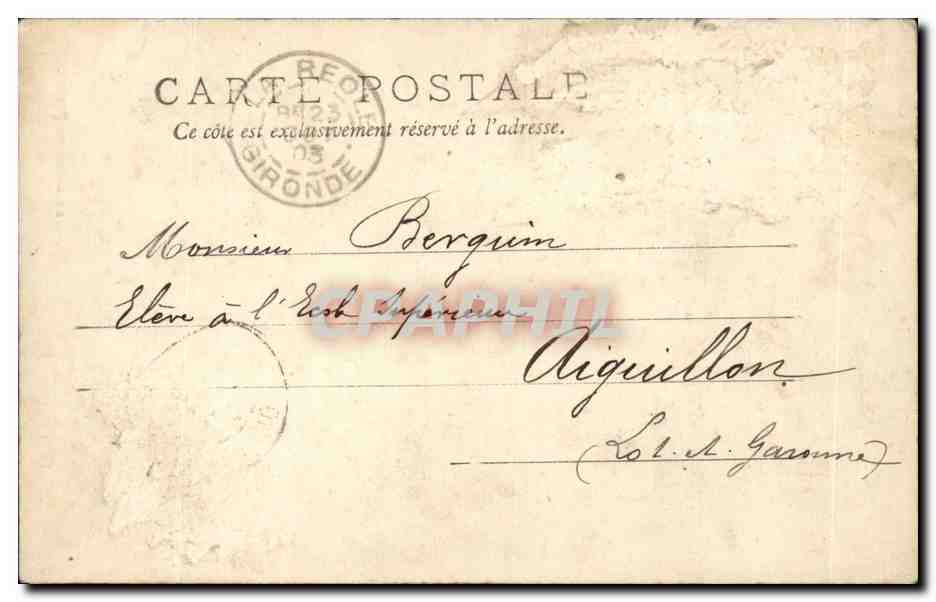 CARTE POSTALE
Ce côte est exclusivement réservé à l'adresse.
LA REOLE
23
03
GIRONDE
Monsieur Berguin
Elève à l'Ecole Supérieure
CPAPHIL
Aiguillon
(Lot-et-Garonne)